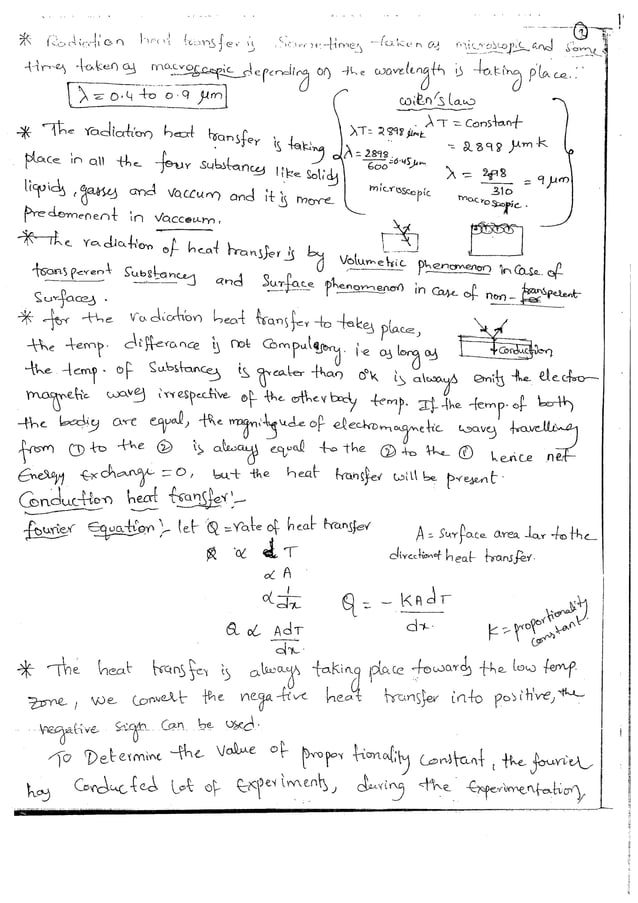 2
* Radiation heat transfer is Sometimes taken as microscopic and Some
times taken as macroscopic depending on the wavelength is taking place.
λ = 0.4 to 0.9 μm
wien's law
λT = Constant
λT = 2898 μmk
= 2898 μmk
λ = 2898/600 = 0.45 μm
λ = 2898/310 = 9 μm
microscopic
macroscopic.
* The radiation heat transfer is taking
place in all the four substances like solids
liquids, gasses and vaccum and it is more
predomenent in vaccoum.
* The radiation of heat transfer is by volumetric phenomenon in case of
transperent Substances and Surface phenomenon in case of non-transperent
Surfaces.
* for the radiation heat transfer to takes place,
the temp. differance is not Compulsory. i.e as long as
conduction
the temp. of Substances is greater than 0°k is always emits the electro-
magnetic waves irrespective of the other body temp. If the temp. of both
the bodies are equal, the magnitude of electromagnetic waves travelling
from ① to the ② is always equal to the ② to the ① hence net
Energy Exchange = 0, but the heat transfer will be present.
Conduction heat transfer:-
fourier Equation:- let Q = rate of heat transfer
A = Surface area lar to the
direction of heat transfer.
Q ∝ dT
∝ A
∝ 1/dx
Q = - KAdT/dx.
K = proportionality
constant
Q ∝ AdT/dx.
* The heat transfer is always taking place towards the low temp.
zone, we convert the negative heat transfer into positive, the
negative sign can be used.
To Determine the value of proportionality Constant, the fourier
has Conducted lot of Experiments, during the Experimentation,